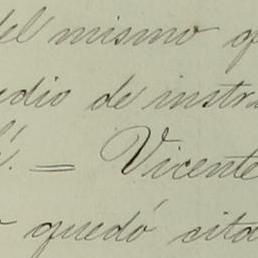 del mismo q
edio de instru
l! = Vicente
o quedó cita